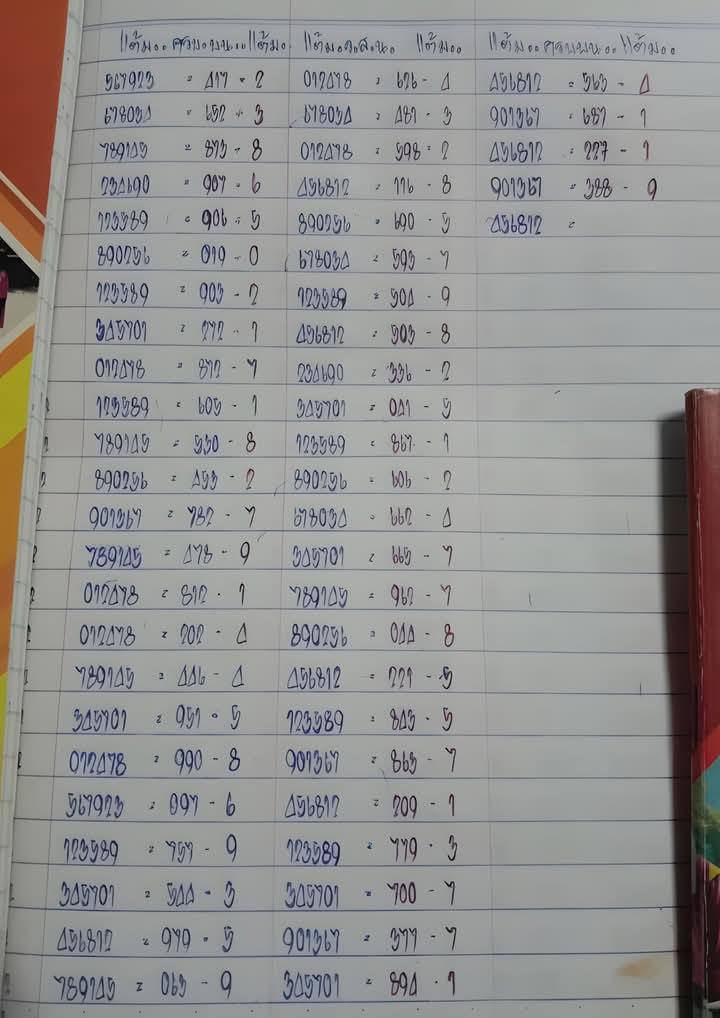 แต้ม.. แต้ม. แต้ม.. แต้ม.. แต้ม.. แต้ม..
567923 = 417 - 2 012478 = 626 - 4 456812 = 563 - 4
678034 = 652 - 3 678034 = 481 - 3 901367 = 687 - 1
789145 = 873 - 8 012478 = 598 - 2 456812 = 227 - 1
234690 = 907 - 6 456812 = 116 - 8 901367 = 388 - 9
123589 = 906 - 5 890256 = 690 - 5 456812 =
890256 = 019 - 0 678034 = 593 - 7
123589 = 903 - 2 123589 = 504 - 9
345701 = 272 - 1 456812 = 503 - 8
012478 = 872 - 7 234690 = 336 - 2
123589 = 605 - 1 345701 = 041 - 5
789145 = 530 - 8 123589 = 867 - 1
890256 = 453 - 2 890256 = 606 - 2
901367 = 782 - 7 678034 = 662 - 4
789145 = 478 - 9 345701 = 665 - 7
012478 = 812 - 1 789145 = 962 - 7
012478 = 202 - 4 890256 = 044 - 8
789145 = 446 - 4 456812 = 221 - 5
345701 = 951 - 5 123589 = 843 - 5
012478 = 990 - 8 901367 = 863 - 7
567923 = 097 - 6 456812 = 209 - 1
123589 = 757 - 9 123589 = 779 - 3
345701 = 544 - 3 345701 = 700 - 7
456812 = 979 - 5 901367 = 377 - 7
789145 = 063 - 9 345701 = 894 - 1